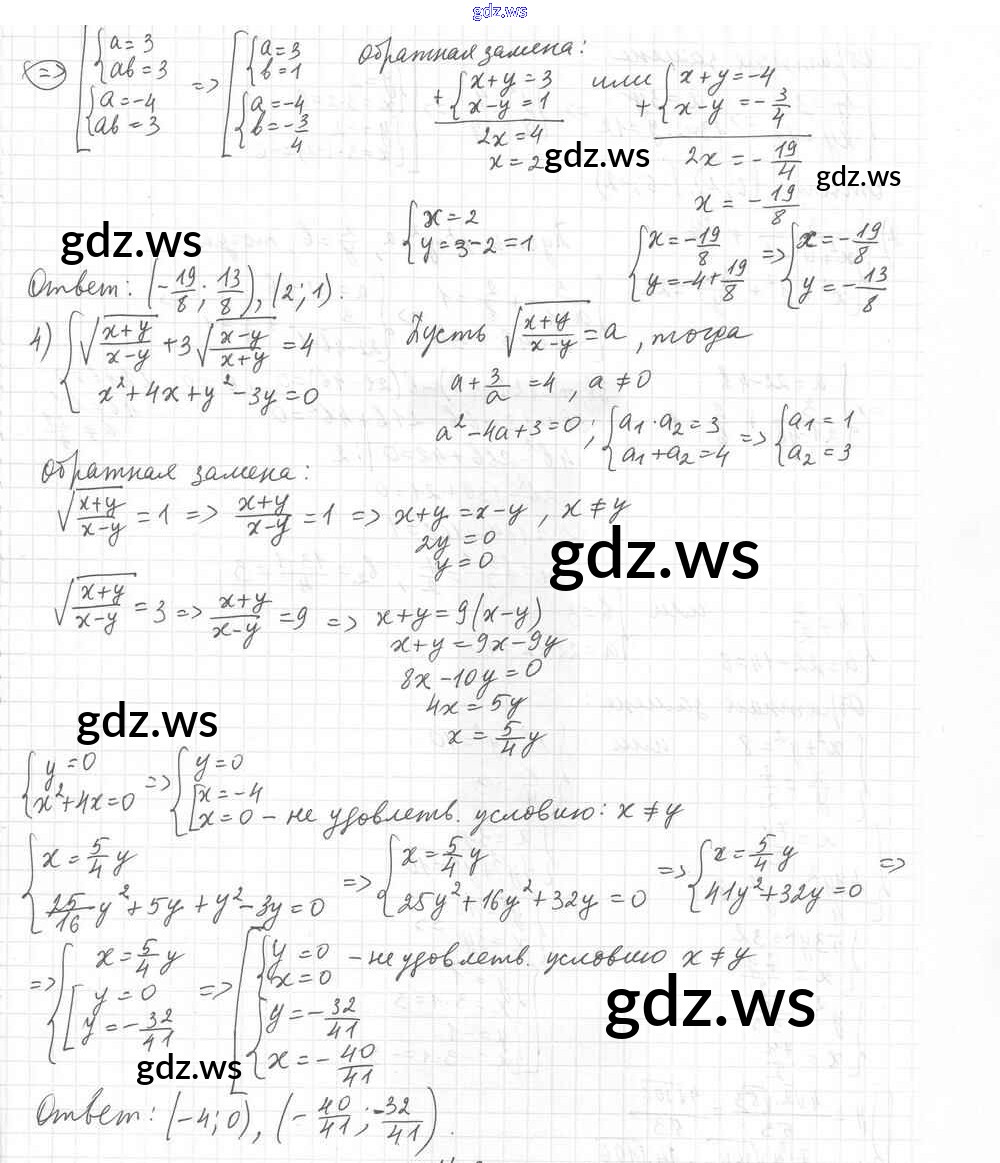 gdz.ws
=> [ { a = 3 ab = 3 { a = -4 ab = 3 => [ { a = 3 b = 1 { a = -4 b = -3/4
обратная замена:
+ { x+y = 3 x-y = 1 или + { x+y = -4 x-y = -3/4
2x = 4 2x = -19/4
x = 2 x = -19/8
gdz.ws gdz.ws
gdz.ws { x = 2 y = 3-2 = 1 { x = -19/8 y = -4+19/8 => { x = -19/8 y = -13/8
Ответ: (-19/8; 13/8), (2; 1).
4) { √((x+y)/(x-y)) + 3√((x-y)/(x+y)) = 4 x²+4x+y²-3y = 0
Пусть √((x+y)/(x-y)) = a, тогда
a + 3/a = 4, a ≠ 0
a²-4a+3 = 0; { a₁·a₂ = 3 a₁+a₂ = 4 => { a₁ = 1 a₂ = 3
Обратная замена:
√((x+y)/(x-y)) = 1 => (x+y)/(x-y) = 1 => x+y = x-y, x ≠ y
2y = 0
y = 0
gdz.ws
√((x+y)/(x-y)) = 3 => (x+y)/(x-y) = 9 => x+y = 9(x-y)
x+y = 9x-9y
8x-10y = 0
4x = 5y
x = 5/4 y
gdz.ws
{ y = 0 x²+4x = 0 => { y = 0 [ x = -4 x = 0 – не удовлетв. условию: x ≠ y
{ x = 5/4 y 25/16 y²+5y+y²-3y = 0 => { x = 5/4 y 25y²+16y²+32y = 0 => { x = 5/4 y 41y²+32y = 0 =>
=> { x = 5/4 y [ y = 0 y = -32/41 => [ { y = 0 x = 0 – не удовлетв. условию x ≠ y { y = -32/41 x = -40/41
gdz.ws
gdz.ws
Ответ: (-4; 0), (-40/41; -32/41).